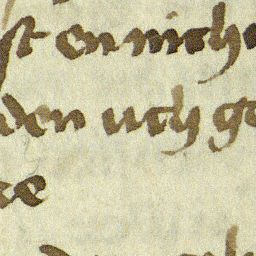 st en nich
den uch ge
re